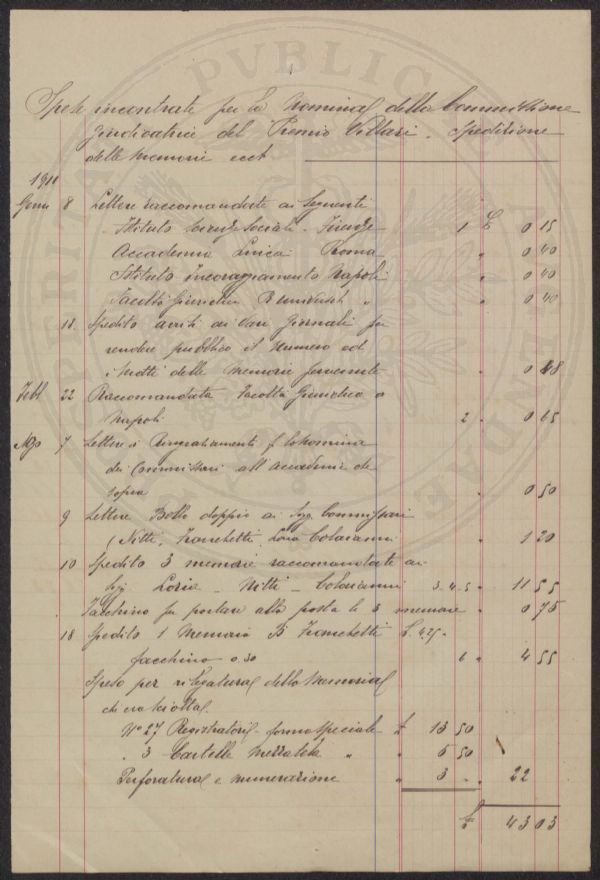 Spese incontrate per la Nomina della Commissione
giudicatrice del Premio Villari. Spedizione
delle Memorie ecct
1911
Genn 8 Lettere raccomandate ai seguenti
Istituto Scienze Sociali - Firenze 1 £ 0 15
Accademia Lincei Roma " 0 40
Istituto Incoraggiamento Napoli " 0 40
Facoltà Giuridica " " 0 40
18 Spedito avvisi ai vari Giornali per
rendere pubblico il numero ed
i Motti delle Memorie pervenute " 0 48
Febb. 22 Raccomandata Facoltà Giuridica a
Napoli 2 " 0 65
7 Lettere di Ringraziamenti p la nomina
dei Commissari all'Accademie di
sopra " 0 50
9 Lettere Bollo doppio ai Sigg. Commissari
(Nitti, Franchetti, Loria Colaianni " 1 20
10 Spedito 3 memorie raccomandate ai
Sigg Loria - Nitti - Colaianni 3-4-5 " 11 55
Facchino per portare alla posta le 3 memorie " 0 75
18 Spedito 1 Memoria B Franchetti £. 4.25
facchino 0.30 6 " 4 55
Speso per rilegatura della Memoria
di
No 27 Registratori - forma speciale £ 13 50
" 3 Cartelle mezza tela " " 5 50
Perforatura e numerazione " 3 " " 22
£ 43 03
PVBLICA